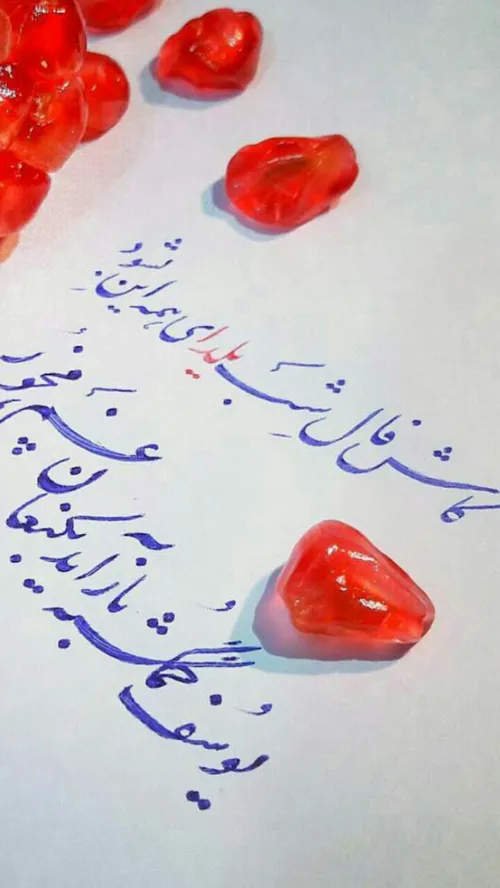 کاش فال شبِ یلدای همه این بشود
یوسف گمگشته باز آید به کنعان غم مخور